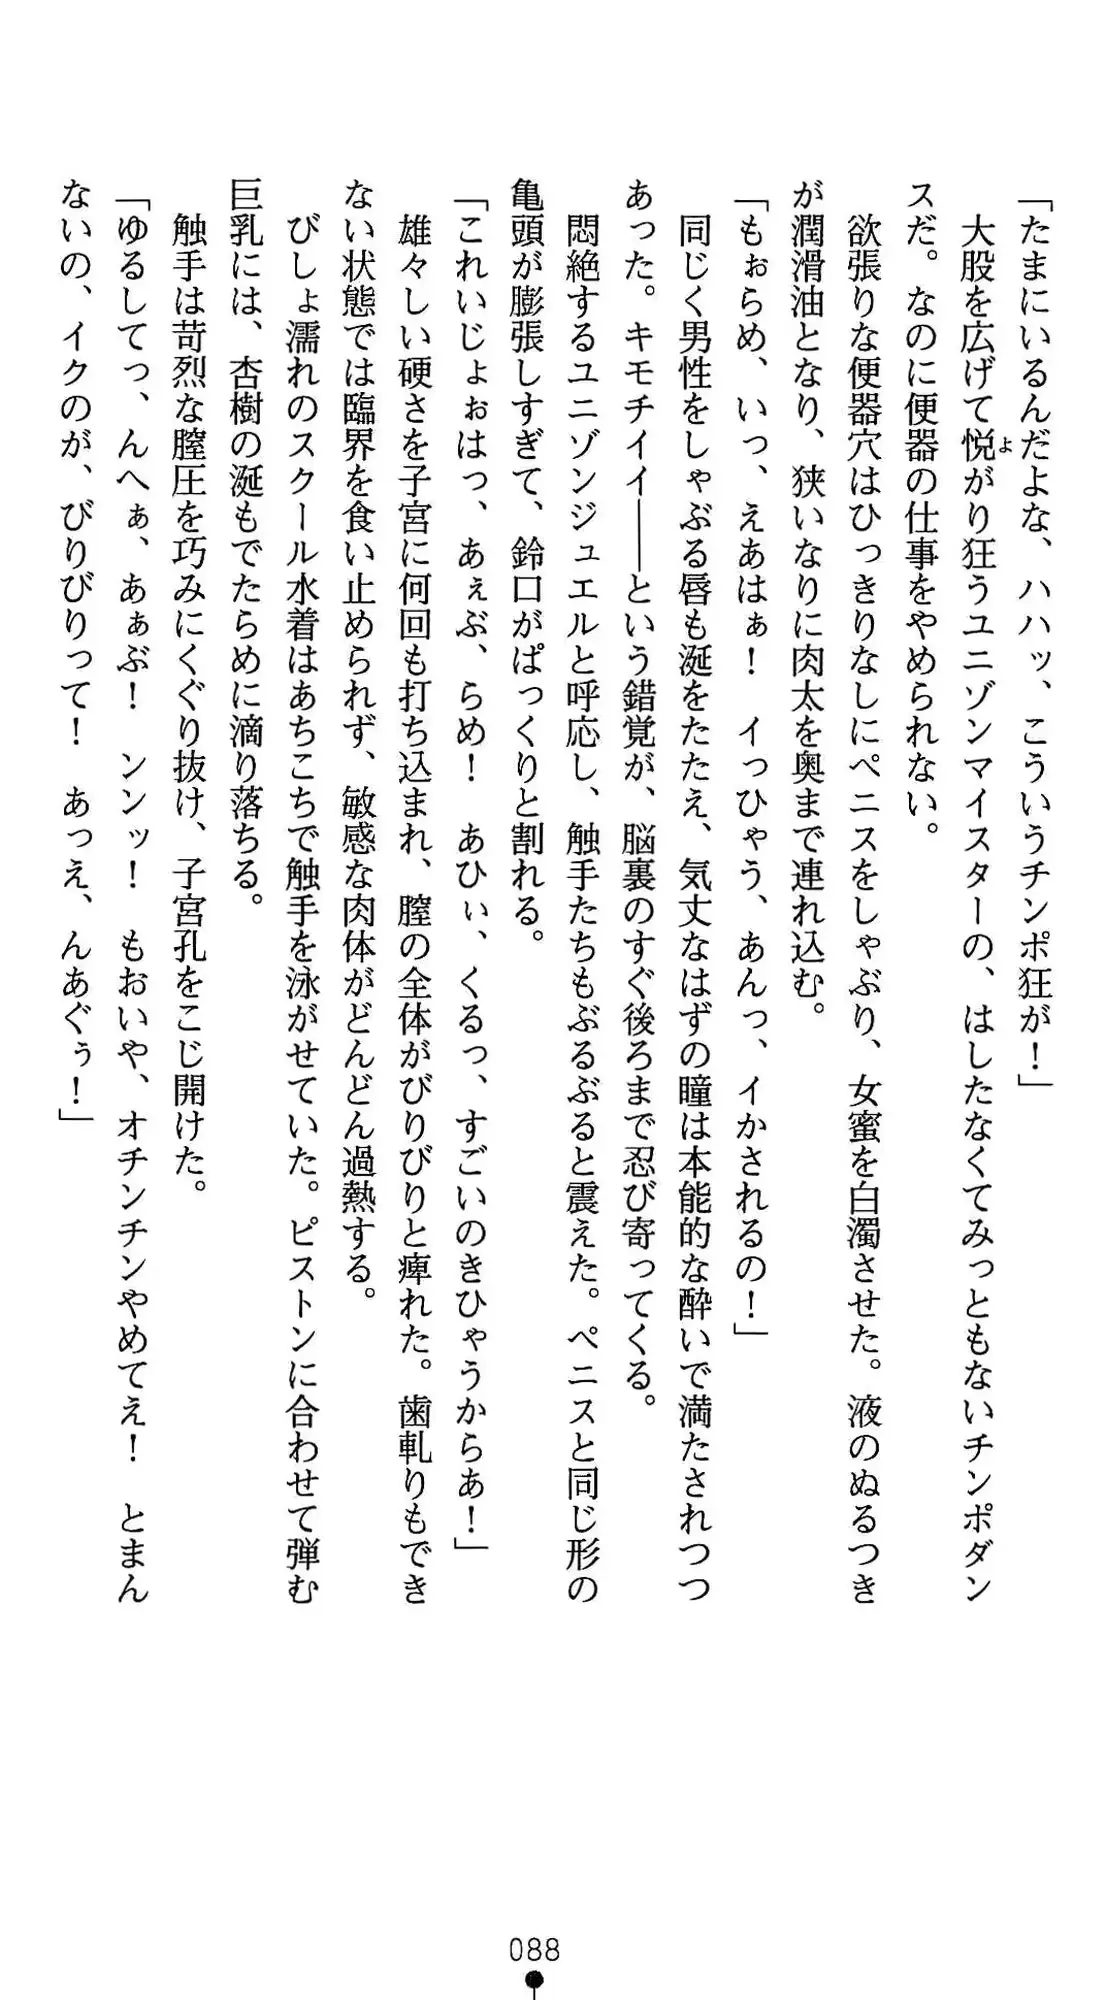 「たまにいるんだよな、ハハッ、こういうチンポ狂が！」
大股を広げて悦がり狂うユニゾンマイスターの、はしたなくてみっともないチンポダン
スだ。なのに便器の仕事をやめられない。
欲張りな便器穴はひっきりなしにペニスをしゃぶり、女蜜を白濁させた。液のぬるつき
が潤滑油となり、狭いなりに肉太を奥まで連れ込む。
「もぉらめ、いっ、えあはぁ！　イっひゃう、あんっ、イかされるの！」
同じく男性をしゃぶる唇も涎をたたえ、気丈なはずの瞳は本能的な酔いで満たされつつ
あった。キモチイイ――という錯覚が、脳裏のすぐ後ろまで忍び寄ってくる。
悶絶するユニゾンジュエルと呼応し、触手たちもぶるぶると震えた。ペニスと同じ形の
亀頭が膨張しすぎて、鈴口がぱっくりと割れる。
「これいじょぉはっ、あぇぶ、らめ！　あひぃ、くるっ、すごいのきひゃうからあ！」
雄々しい硬さを子宮に何回も打ち込まれ、膣の全体がびりびりと痺れた。歯軋りもでき
ない状態では臨界を食い止められず、敏感な肉体がどんどん過熱する。
びしょ濡れのスクール水着はあちこちで触手を泳がせていた。ピストンに合わせて弾む
巨乳には、杏樹の涎もでたらめに滴り落ちる。
触手は苛烈な膣圧を巧みにくぐり抜け、子宮孔をこじ開けた。
「ゆるしてっ、んへぁ、あぁぶ！　ンンッ！　もおいや、オチンチンやめてえ！　とまん
ないの、イクのが、びりびりって！　あっえ、んあぐぅ！」
088